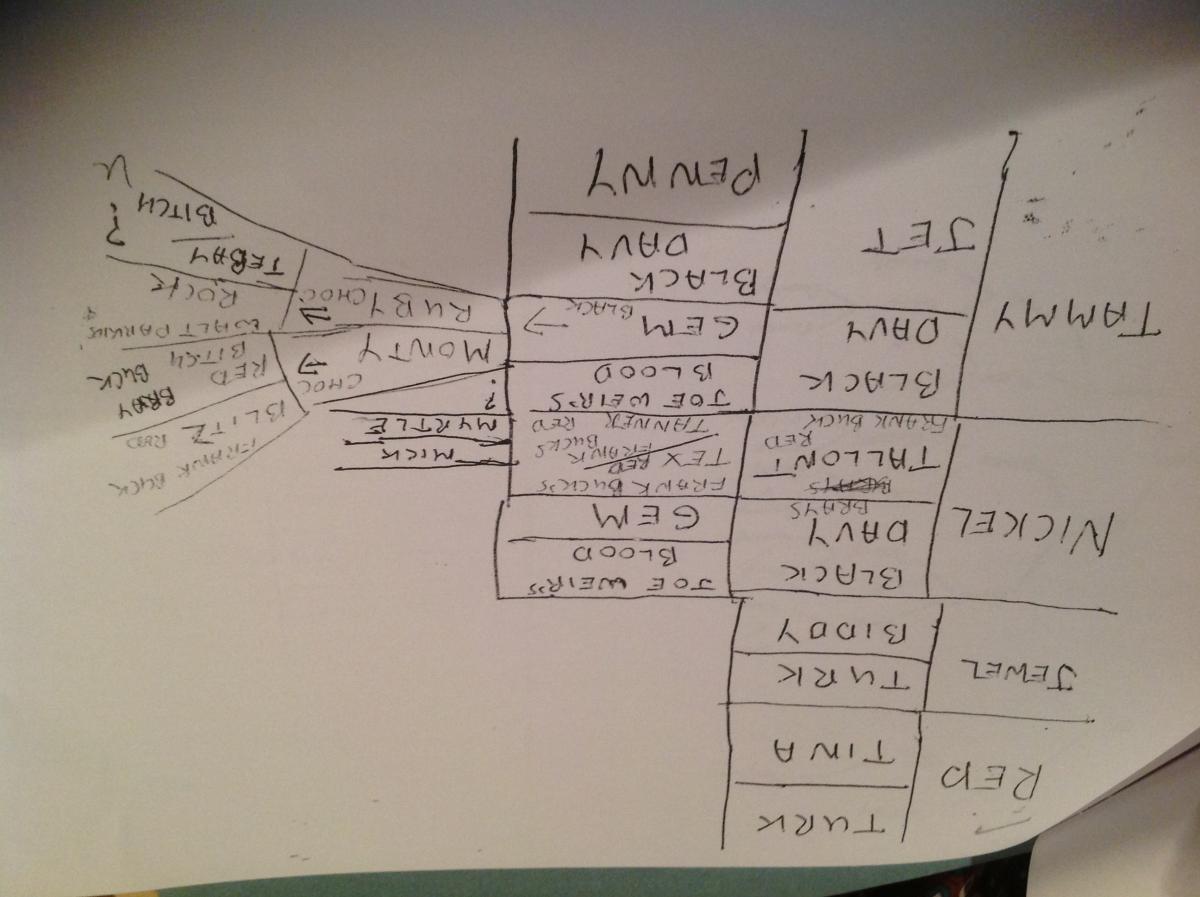 TURK
RED
TINA
TURK
JEWEL
BIDDY
BLACK
DAVY
BRAYS
NICKEL
JOE WEIR'S
BLOOD
GEM
FRANK BUCK'S
TALLONT
RED
FRANK BUCK
TEX RED
FRANK
BUCKS
TANNER RED
MICK
MYRTLE
?
BLACK
DAVY
TAMMY
JET
JOE WEIR'S
BLOOD
GEM
BLACK
BLACK
DAVY
PENNY
MONTY
CHOC
RUBY
CHOC
FRANK BUCK
BLITZ RED
BRAY
BUCK
RED
BITCH
WALT PARKINS
ROCK
TEBAY
BITCH
?